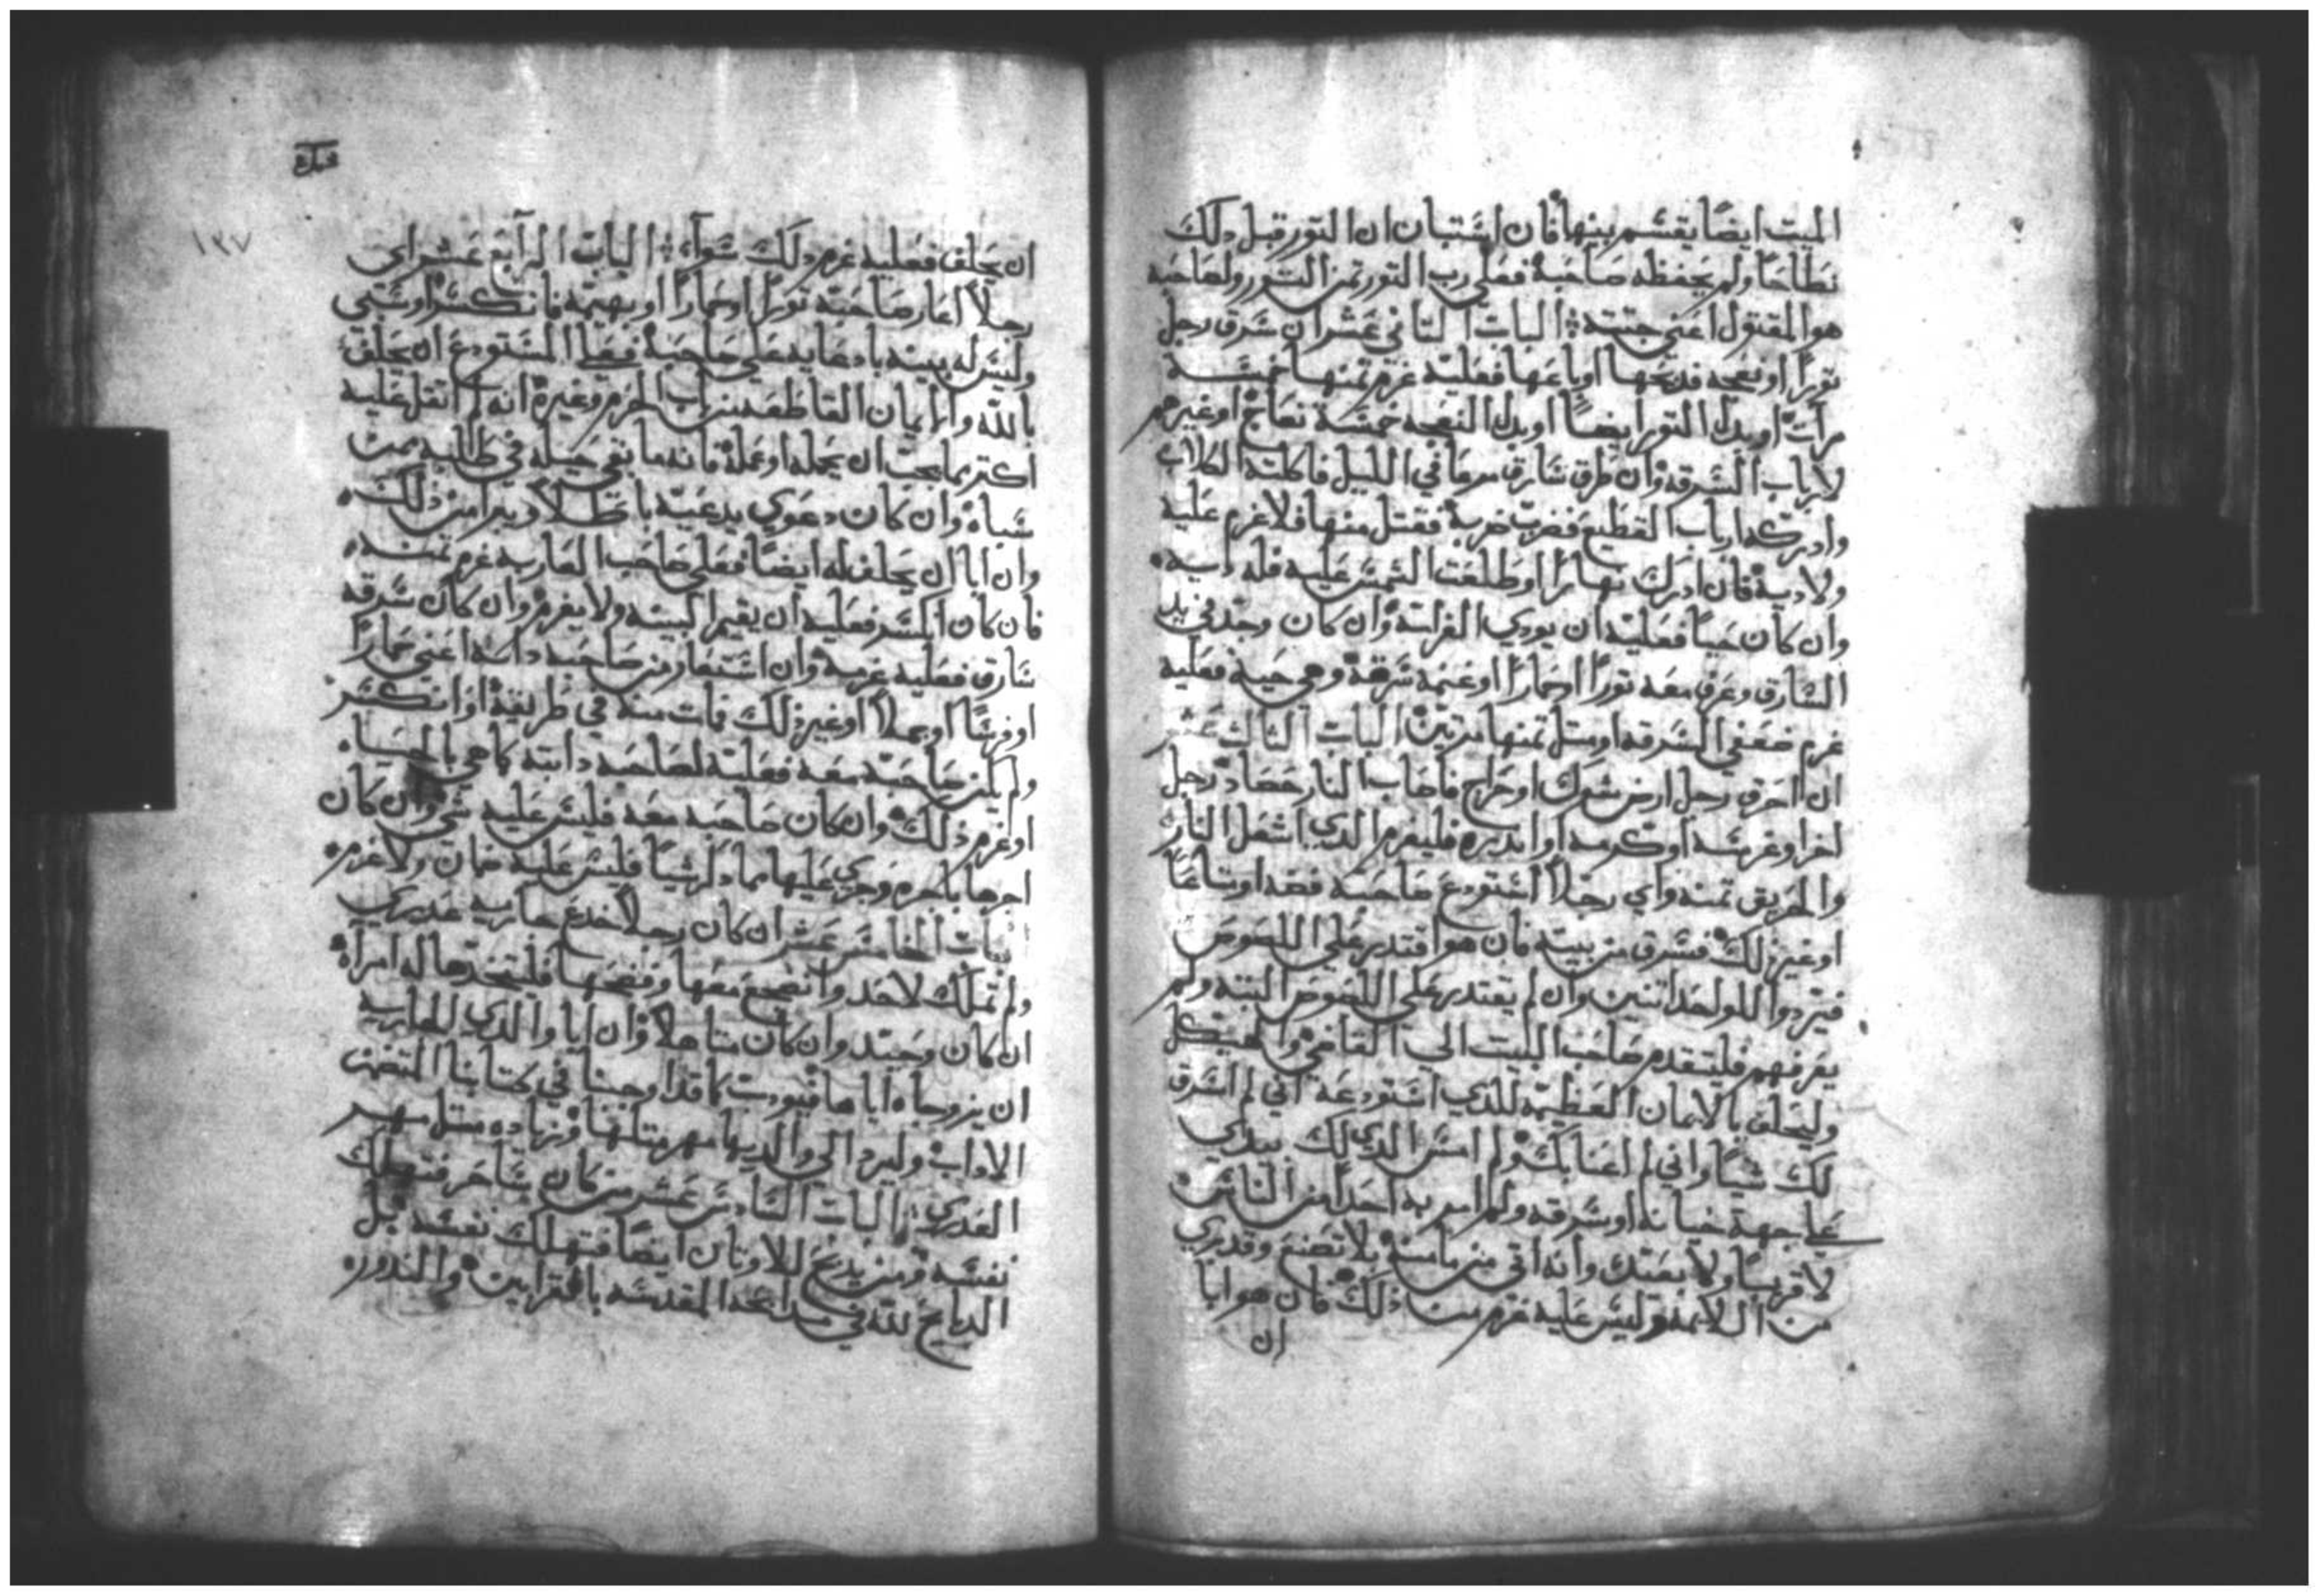 الميت ايضًا يقسم بينها فان استبان ان التور قبل دلك
نطاحًا ولم يحفظه صاحبه فعلي رب التور تمن التور ولصاحبه
هو المقتول اعني جتته الباب التاني عشر ان سرق رجل
تورًا او نعجه فدبحها او باعها فعليه غرم تمنها خمسة
مرات او بدل التور ايضًا او بدل النعجه خمسة نعاج او غيرهم
لارباب السرقه وان طرق سارق مرعًا في الليل فاكلته الكلاب
وادركه ارباب القطيع فضرب ضربة فقتل منها فلا غرم عليه
ولا دية فان ادرك نهارًا او طلعت الشمس عليه فله دية
وان كان حيًا فعليه ان يودي الغرامة وان كان وجد في يد
السارق وعرف معه تورًا او حمارًا او غنمه سرقة وهي حية فعليه
غرم ضعفي السرقه او متل تمنها مرتين الباب التالت عشر
ان احرق رجل ارض شوك او حراج فاصاب النار حصاد رجل
اخر او غرسه او كرمه او اندره فليغرم الدي اشعل النار
والحريق تمنه واي رجلًا استودع صاحبه فضه او متاعًا
او غير ذلك فسرق من بيته فان هو اقتدر علي اللصوص
فيردوا للواحد اتنين وان لم يقتدر علي اللصوص البته ولم
يعرفهم فليتقدم صاحب البيت الي القاضي والهيكل
وليحلف بالايمان العظيمه للدي استودعه اني لم اسرق
لك شيًا واني لم اعنا بك ولم امس الدي لك بيدي
علي جهة خيانه او سرقه ولم امر به احدًا من الناس
لا قريبًا ولا بعيد وانه اتي من مامنه بلا تصنع وقد بري
من اللايمه وليس عليه غرم من ذلك فان هو ابا
ان
١٣٧
ان يحلف فعليه غرم دلك سواء الباب الرابع عشر اي
رجلًا اعار صاحبه تورًا او حمارًا او بهيمه فانكسر او سبي
وليس له بينه بادعايه علي صاحبه فعلي المستودع ان يحلف
بالله والايمان القاطعه من باب الحرم وغيره انه لم اتقل عليه
اكتر مما يجب ان يحمله او عمله فانه ما بقي حيله في طلبه ممن
سباه وان كان دعوي يدعيه باطلًا ديرا من ذلك
وان ابا ان يحلف له ايضًا فعلي صاحب العاريه غرم تمنه
فان كان انكسر فعليه ان يقيم البينه ولا يغرم وان كان سرقه
سارق فعليه غرمه وان استعار من صاحبه دابه اعني حمارًا
او فرسًا او جملًا او غير ذلك فمات منه في طريقه او انكسر
ولم يكن صاحبه معه فعليه لصاحبه دابته كما هي بالحياه
او غرم ذلك وان كان صاحبه معه فليس عليه شي وان كان
اجرها باجره وجري عليها مما دكر شيًا فليس عليه ضمان ولا غرم
الباب الخامس عشر ان كان رجلًا خدع جاريه عدري
ولم تملك لاحد واضجع معها وفضحها فليتخدها له امرأة
ان كان وحيد وان كان متاهلًا وان ابا والدي الجاريه
ان يزوجاه اياها فيودب كما قد اوجبنا في كتابنا المتضمن
الاداب وليرد الي والديها مهر متلها وزياده متل مهر
العدري الباب السادس عشر من كان ساحر فتهلك
نفسه ومن يدبح للاوتان ايضًا فتهلك نفسه بل
الدبايح لله في مدابحه المقدسه بالقرابين والندور